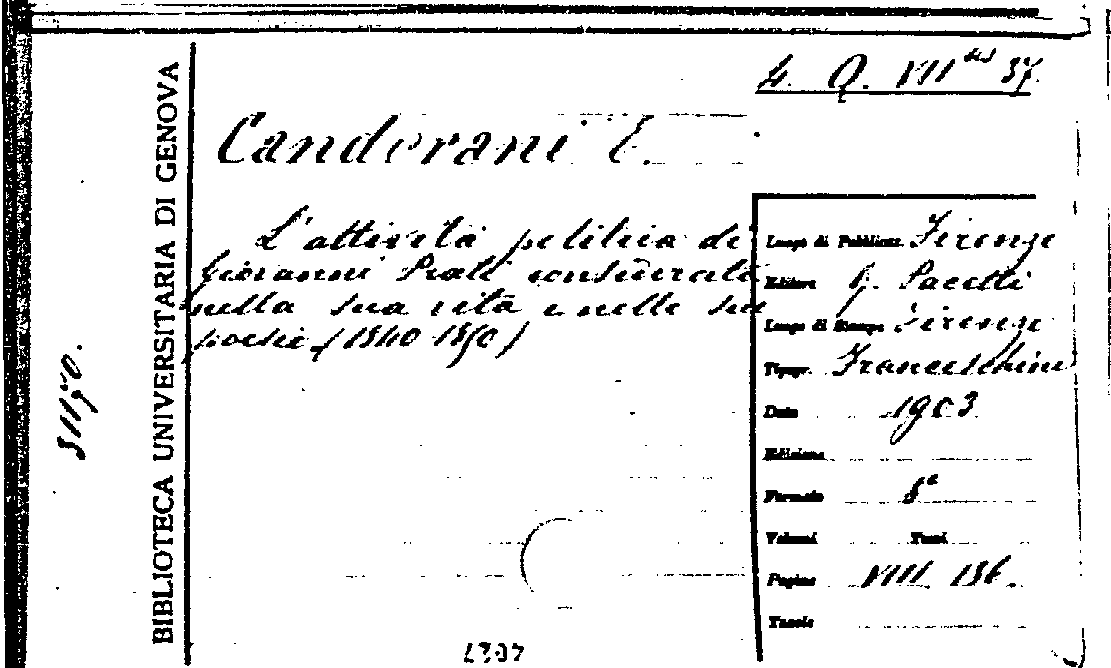 4. Q. VIII bis 37.
Candorani E.
L'attività politica di
Giovanni Prati considerata
nella sua vita e nelle sue
poesie (1840-1850)
Luogo di Pubblicaz. Firenze
Editore G. Pacetti
Luogo di Stampa Firenze
Tipogr. Franceschini
Data 1903
Edizione
Formato 8º
Volumi Tomi
Pagine VIII 136.
Tavole
BIBLIOTECA UNIVERSITARIA DI GENOVA
31150.